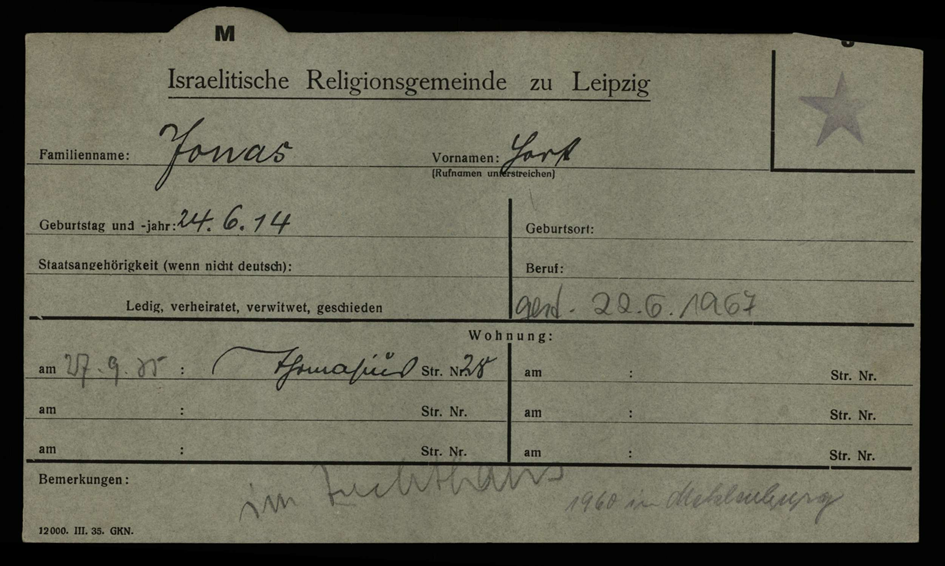 M
Israelitische Religionsgemeinde zu Leipzig
Familienname: Jonas Vornamen: Horst
(Rufnamen unterstreichen)
Geburtstag und -jahr: 24.6.14 Geburtsort:
Staatsangehörigkeit (wenn nicht deutsch): Beruf:
Ledig, verheiratet, verwitwet, geschieden gest. 22.6.1967
Wohnung:
am 27.9.35 : Thomasius Str. Nr. 28 am : Str. Nr.
am : Str. Nr. am : Str. Nr.
am : Str. Nr. am : Str. Nr.
Bemerkungen: im Zuchthaus 1960 in Mecklenburg
12000. III. 35. GKN.